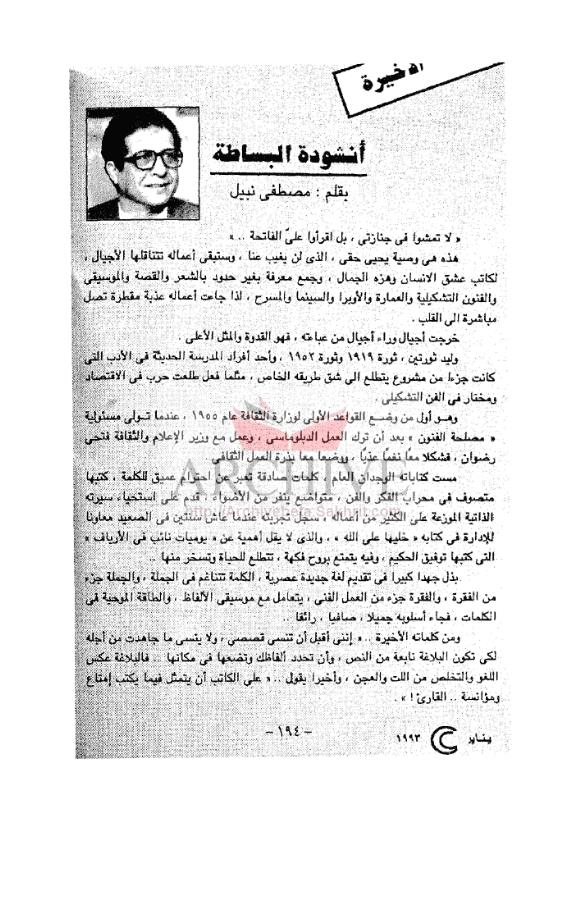 الأخيرة
أنشودة البساطة
بقلم : مصطفى نبيل
« لا تمشوا فى جنازتى ، بل اقرأوا علىّ الفاتحة .. »
هذه هى وصية يحيى حقى ، الذى لن يغيب عنا ، وستبقى أعماله تتناقلها الأجيال ،
لكاتب عشق الانسان وهزه الجمال ، وجمع معرفة بغير حدود بالشعر والقصة والموسيقى
والفنون التشكيلية والعمارة والأوبرا والسينما والمسرح ، لذا جاءت أعماله عذبة مقطرة تصل
مباشرة الى القلب .
خرجت أجيال وراء أجيال من عباءته ، فهو القدوة والمثل الأعلى .
وليد ثورتين ، ثورة ١٩١٩ وثورة ١٩٥٢ ، وأحد أفراد المدرسة الحديثة فى الأدب التى
كانت جزءا من مشروع يتطلع الى شق طريقه الخاص ، مثلما فعل طلعت حرب فى الاقتصاد
ومختار فى الفن التشكيلى .
وهو أول من وضع القواعد الأولى لوزارة الثقافة عام ١٩٥٥ ، عندما تولى مسئولية
« مصلحة الفنون » بعد أن ترك العمل الدبلوماسى ، وعمل مع وزير الإعلام والثقافة فتحى
رضوان ، فشكلا معا نغما عذبا ، ووضعا معا بذرة العمل الثقافى .
مست كتاباته الوجدان العام ، كلمات صادقة تعبر عن احترام عميق للكلمة ، كتبها
متصوف فى محراب الفكر والفن ، متواضع ينفر من الأضواء ، قدم على استحياء سيرته
الذاتية الموزعة على الكثير من أعماله ، سجل تجربته عندما عاش سنتين فى الصعيد معاونا
للإدارة فى كتابه « خليها على الله » ، والذى لا يقل أهمية عن « يوميات نائب فى الأرياف »
التى كتبها توفيق الحكيم ، وفيه يتمتع بروح فكهة ، تتطلع للحياة وتسخر منها ..
بذل جهدا كبيرا فى تقديم لغة جديدة عصرية ، الكلمة تتناغم فى الجملة ، والجملة جزء
من الفقرة ، والفقرة جزء من العمل الفنى ، يتعامل مع موسيقى الألفاظ ، والطاقة الموحية فى
الكلمات ، فجاء أسلوبه جميلا ، صافيا ، رائقا ..
ومن كلماته الأخيرة .. « إننى أقبل أن تنسى قصصى ، ولا ينسى ما جاهدت من أجله
لكى تكون البلاغة نابعة من النص ، وأن تحدد ألفاظك وتضعها فى مكانها .. فالبلاغة عكس
اللغو والتخلص من اللت والعجن ، وأخيرا يقول .. « على الكاتب أن يتمثل فيما يكتب إمتاع
ومؤانسة .. القارئ ! » .
ARCHIVE
http://Archivebeta.Sakhrit.com
يناير ١٩٩٣
– ١٩٤ –